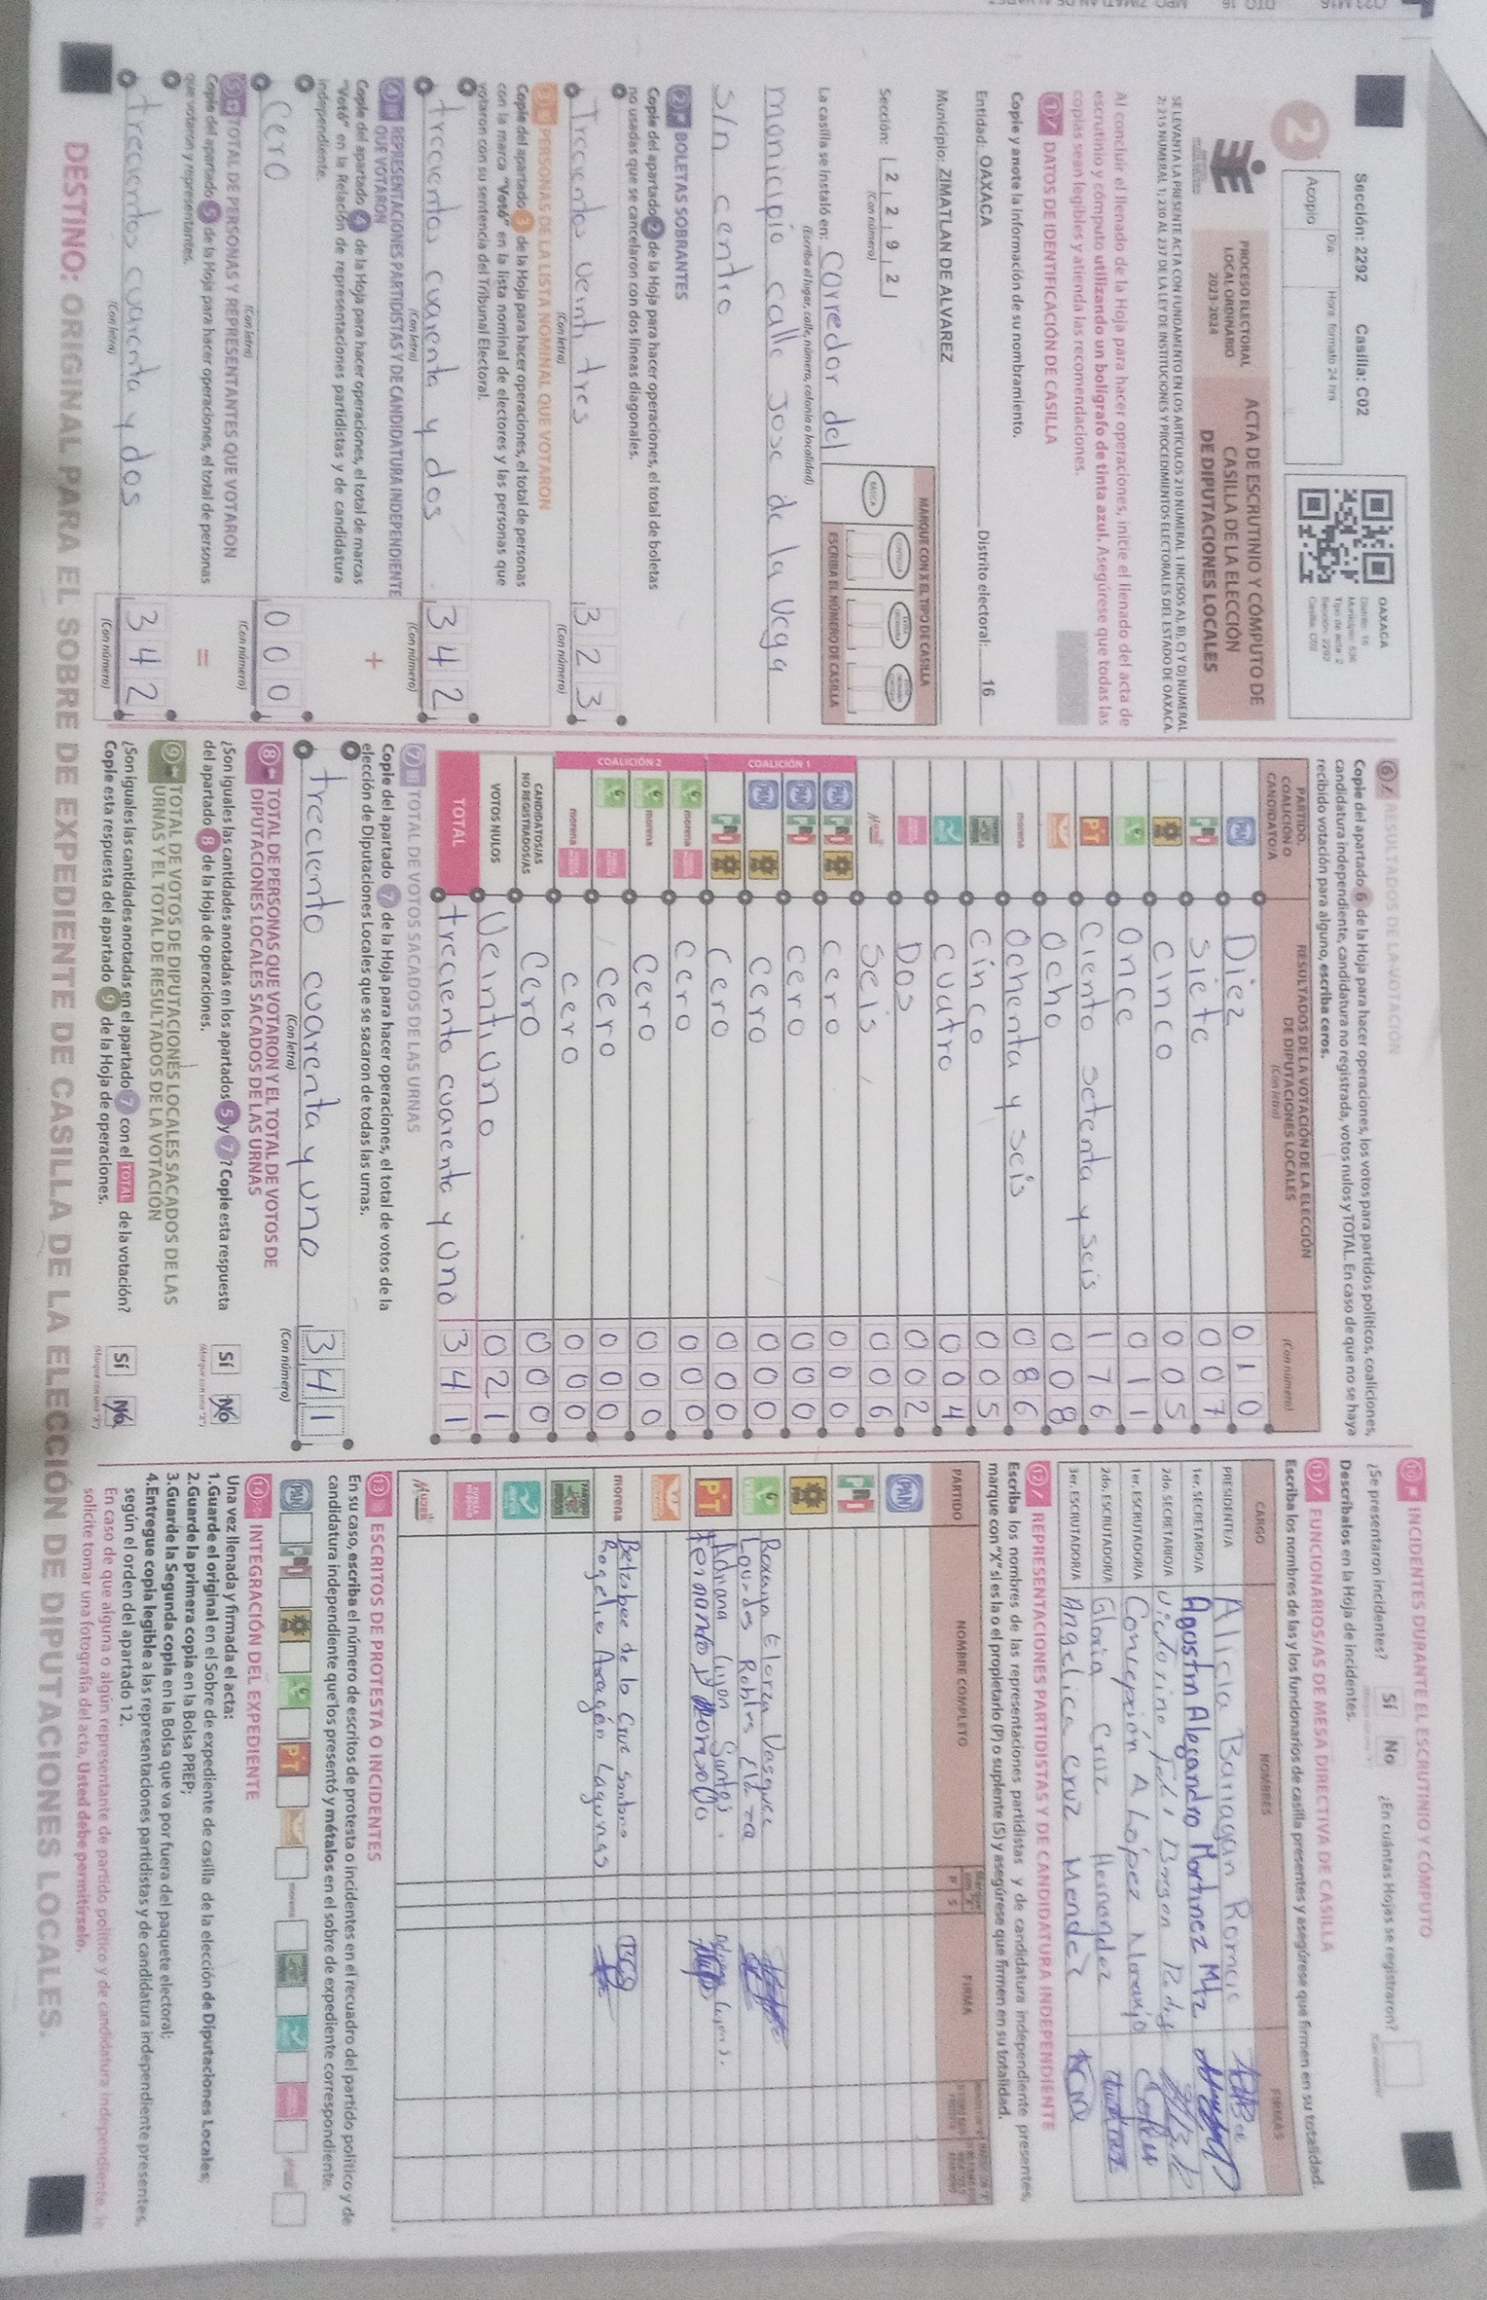 Sección: 2292 Casilla: C02
2
Acopio
Día
Hora: formato 24 hrs
OAXACA
Distrito: 16
Tipo de acta: 2
Sección: 2292
Casilla: C02
PROCESO ELECTORAL
LOCAL ORDINARIO
2023-2024
ACTA DE ESCRUTINIO Y CÓMPUTO DE
CASILLA DE LA ELECCIÓN
DE DIPUTACIONES LOCALES
SE LEVANTA LA PRESENTE ACTA CON FUNDAMENTO EN LOS ARTÍCULOS 210 NUMERAL 1 INCISOS A), B), C) Y D) NUMERAL
2; 215 NUMERAL 1; 230 AL 237 DE LA LEY DE INSTITUCIONES Y PROCEDIMIENTOS ELECTORALES DEL ESTADO DE OAXACA.
Al concluir el llenado de la Hoja para hacer operaciones, inicie el llenado del acta de
escrutinio y cómputo utilizando un bolígrafo de tinta azul. Asegúrese que todas las
copias sean legibles y atienda las recomendaciones.
1 DATOS DE IDENTIFICACIÓN DE CASILLA
Copie y anote la información de su nombramiento.
Entidad: OAXACA Distrito electoral: 16
Municipio: ZIMATLAN DE ALVAREZ
Sección: 2 2 9 2
(Con número)
MARQUE CON X EL TIPO DE CASILLA
BÁSICA
ESCRIBA EL NÚMERO DE CASILLA
La casilla se instaló en: Corredor del
(Escriba el lugar, calle, número, colonia o localidad)
municipio calle Jose de la Vega
s/n centro
2 BOLETAS SOBRANTES
Copie del apartado 2 de la Hoja para hacer operaciones, el total de boletas
no usadas que se cancelaron con dos líneas diagonales.
Trecientos veinti tres 3 2 3
(Con letra) (Con número)
3 PERSONAS DE LA LISTA NOMINAL QUE VOTARON
Copie del apartado 3 de la Hoja para hacer operaciones, el total de personas
con la marca "Votó" en la lista nominal de electores y las personas que
votaron con su sentencia del Tribunal Electoral.
trecientos cuarenta y dos 3 4 2
(Con letra) (Con número)
4 REPRESENTACIONES PARTIDISTAS Y DE CANDIDATURA INDEPENDIENTE
QUE VOTARON
Copie del apartado 4 de la Hoja para hacer operaciones, el total de marcas
"Votó" en la Relación de representaciones partidistas y de candidatura
independiente.
+
Cero 0 0 0
(Con letra) (Con número)
5 TOTAL DE PERSONAS Y REPRESENTANTES QUE VOTARON
Copie del apartado 5 de la Hoja para hacer operaciones, el total de personas
que votaron y representantes.
=
trecientos cuarenta y dos 3 4 2
(Con letra) (Con número)
6 RESULTADOS DE LA VOTACIÓN
Copie del apartado 6 de la Hoja para hacer operaciones, los votos para partidos políticos, coaliciones,
candidatura independiente, candidatura no registrada, votos nulos y TOTAL. En caso de que no se haya
recibido votación para alguno, escriba ceros.
PARTIDO,
COALICIÓN O
CANDIDATO/A
RESULTADOS DE LA VOTACIÓN DE LA ELECCIÓN
DE DIPUTACIONES LOCALES
(Con letra)
(Con número)
PAN Diez 0 1 0
PRI siete 0 0 7
cinco 0 0 5
once 0 1 1
PT ciento setenta y seis 1 7 6
ocho 0 0 8
morena ochenta y seis 0 8 6
cinco 0 0 5
cuatro 0 0 4
Dos 0 0 2
Mujer seis 0 0 6
COALICIÓN 1
PAN PRI cero 0 0 0
PAN PRI cero 0 0 0
PAN cero 0 0 0
PRI cero 0 0 0
COALICIÓN 2
morena cero 0 0 0
morena cero 0 0 0
cero 0 0 0
morena cero 0 0 0
CANDIDATOS/AS
NO REGISTRADOS/AS cero 0 0 0
VOTOS NULOS Veintiuno 0 2 1
TOTAL treciento cuarenta y uno 3 4 1
7 TOTAL DE VOTOS SACADOS DE LAS URNAS
Copie del apartado 7 de la Hoja para hacer operaciones, el total de votos de la
elección de Diputaciones Locales que se sacaron de todas las urnas.
treciento cuarenta y uno 3 4 1
(Con letra) (Con número)
8 TOTAL DE PERSONAS QUE VOTARON Y EL TOTAL DE VOTOS DE
DIPUTACIONES LOCALES SACADOS DE LAS URNAS
¿Son iguales las cantidades anotadas en los apartados 5 y 7? Copie esta respuesta
del apartado 8 de la Hoja de operaciones.
Sí No
9 TOTAL DE VOTOS DE DIPUTACIONES LOCALES SACADOS DE LAS
URNAS Y EL TOTAL DE RESULTADOS DE LA VOTACIÓN
¿Son iguales las cantidades anotadas en el apartado 7 con el TOTAL de la votación?
Copie esta respuesta del apartado 9 de la Hoja de operaciones.
Sí No
10 INCIDENTES DURANTE EL ESCRUTINIO Y CÓMPUTO
¿Se presentaron incidentes? Sí No ¿En cuántas Hojas se registraron?
Descríbalos en la Hoja de incidentes.
11 FUNCIONARIOS/AS DE MESA DIRECTIVA DE CASILLA
Escriba los nombres de las y los funcionarios de casilla presentes y asegúrese que firmen en su totalidad.
CARGO NOMBRES FIRMAS
PRESIDENTE/A Alicia Barragan Romcic
1er. SECRETARIO/A Agostin Alegandro Martinez Mtz
2do. SECRETARIO/A Victorino
1er. ESCRUTADOR/A Concepción A López Naranjo
2do. ESCRUTADOR/A Gloria Cruz Hernandez
3er. ESCRUTADOR/A Angelica Cruz Mendez
12 REPRESENTACIONES PARTIDISTAS Y DE CANDIDATURA INDEPENDIENTE
Escriba los nombres de las representaciones partidistas y de candidatura independiente presentes,
marque con "X" si es la o el propietario (P) o suplente (S) y asegúrese que firmen en su totalidad.
PARTIDO NOMBRE COMPLETO P S FIRMA
PAN
PRI
Roxana Elorza Vasquez
Lourdes Robles
PT Adriana Lujan Santos
Fernando
morena Belzabee de la Cruz Sombra
Rogelio Aragón Lagunas
Mujer
13 ESCRITOS DE PROTESTA O INCIDENTES
En su caso, escriba el número de escritos de protesta o incidentes en el recuadro del partido político y de
candidatura independiente que los presentó y métalos en el sobre de expediente correspondiente.
PAN PRI PT morena
14 INTEGRACIÓN DEL EXPEDIENTE
Una vez llenada y firmada el acta:
1.Guarde el original en el Sobre de expediente de casilla de la elección de Diputaciones Locales;
2.Guarde la primera copia en la Bolsa PREP;
3.Guarde la Segunda copia en la Bolsa que va por fuera del paquete electoral;
4.Entregue copia legible a las representaciones partidistas y de candidatura independiente presentes,
según el orden del apartado 12.
En caso de que alguna o algún representante de partido político y de candidatura independiente, le
solicite tomar una fotografía del acta, Usted debe permitírselo.
DESTINO: ORIGINAL PARA EL SOBRE DE EXPEDIENTE DE CASILLA DE LA ELECCIÓN DE DIPUTACIONES LOCALES.